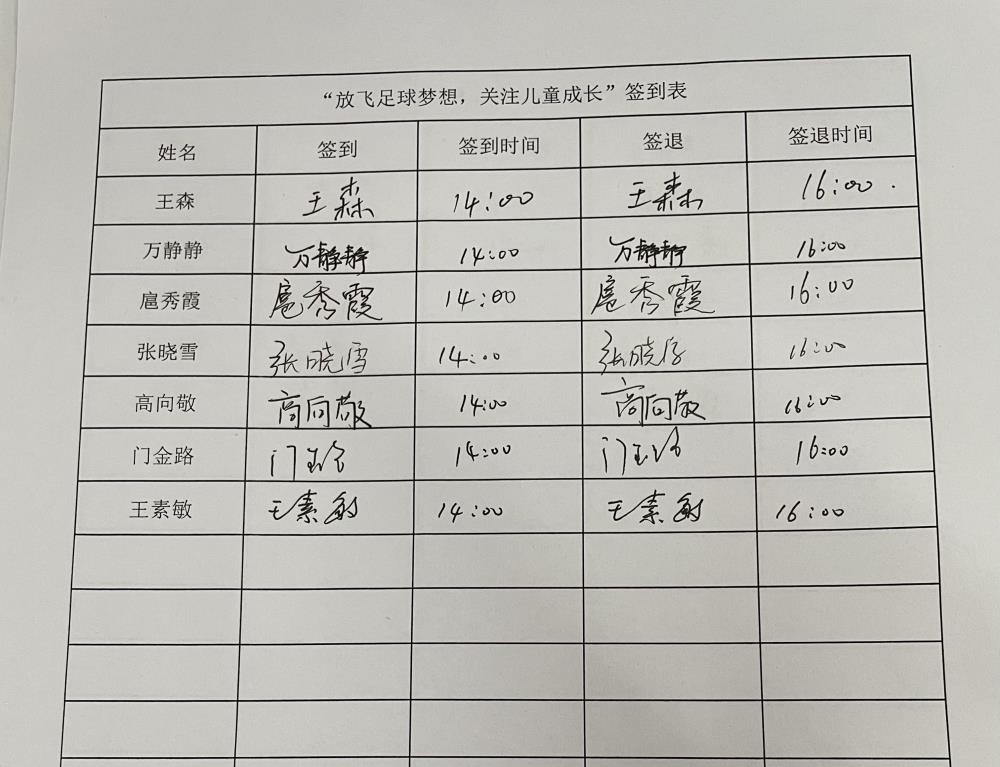 “放飞足球梦想，关注儿童成长”签到表
姓名 签到 签到时间 签退 签退时间
王森 王森 14:00 王森 16:00
万静静 万静静 14:00 万静静 16:00
扈秀霞 扈秀霞 14:00 扈秀霞 16:00
张晓雪 张晓雪 14:00 张晓雪 16:00
高向敬 高向敬 14:00 高向敬 16:00
门金路 门金路 14:00 门金路 16:00
王素敏 王素敏 14:00 王素敏 16:00